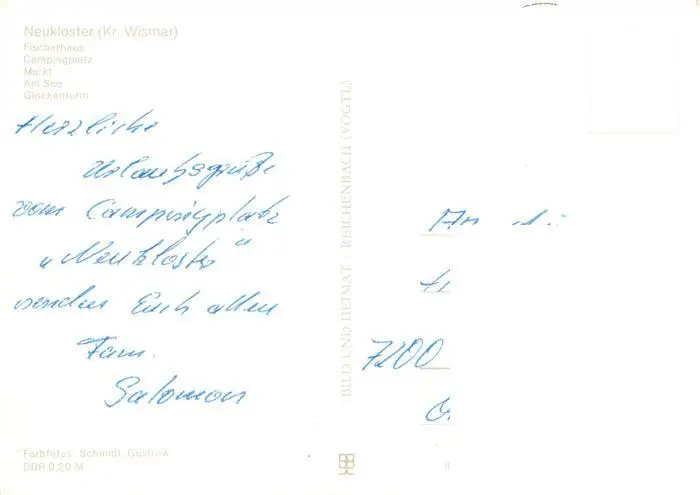 Neukloster (Kr. Wismar)
Fischerhaus
Campingplatz
Markt
Am See
Glockenturm
Herzliche
Urlaubsgrüße
vom Campingplatz
„Neukloster"
senden Euch allen
Fam.
Salomon
Farbfotos: Schmidt, Güstrow
DDR 0,20 M
BILD UND HEIMAT · REICHENBACH (VOGTL)
An
7200